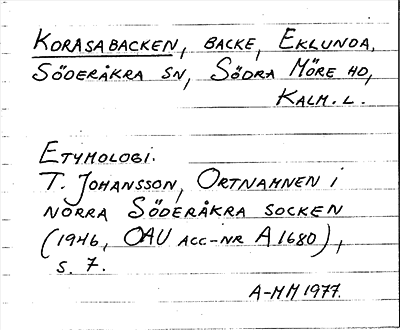 KORASABACKEN, BACKE, EKLUNDA,
SÖDERÅKRA SN, SÖDRA MÖRE HD,
KALM. L.
ETYMOLOGI.
T. JOHANSSON, ORTNAMNEN I
NORRA SÖDERÅKRA SOCKEN
(1946, OAU ACC-NR A1680),
S. 7.
A-MH 1977.